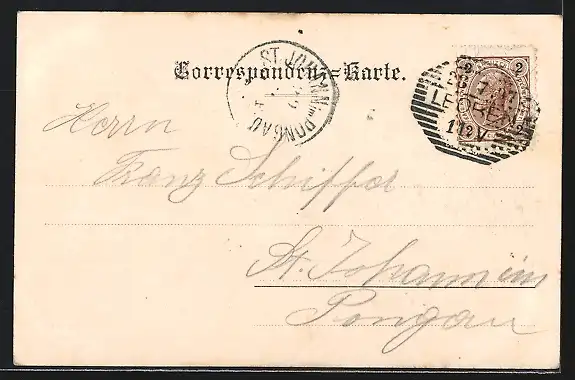 Correspondenz-Karte.
ST JOHANN im PONGAU
2 2
LEOBEN
2 2
Herrn
Franz Schiffer
St. Johann im
Pongau